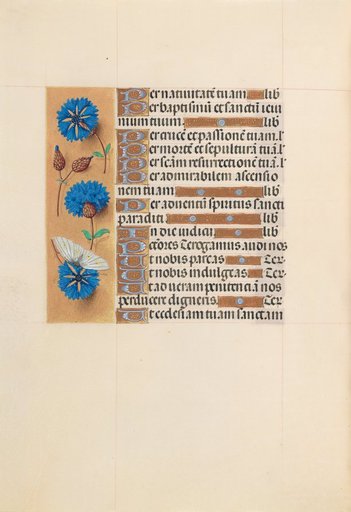 Per natiuitatē tuam lib
Per baptismū et sanctū ieiu
nium tuum. lib
Per crucē et passionē tuam. l'
Per mortē et sepulturā tuā. l'
Per scām resurrectionē tuā. l'
Per admirabilem ascensio
nem tuam lib
Per aduentū spiritus sancti
paracliti lib
In die iudicij lib
Peccōres Te rogamus audi nos
Ut nobis parcas Te r
Ut nobis indulgeas Te r
Ut ad ueram penitenciā nos
perducere digneris. Te r
Ut ecclesiam tuam sanctam